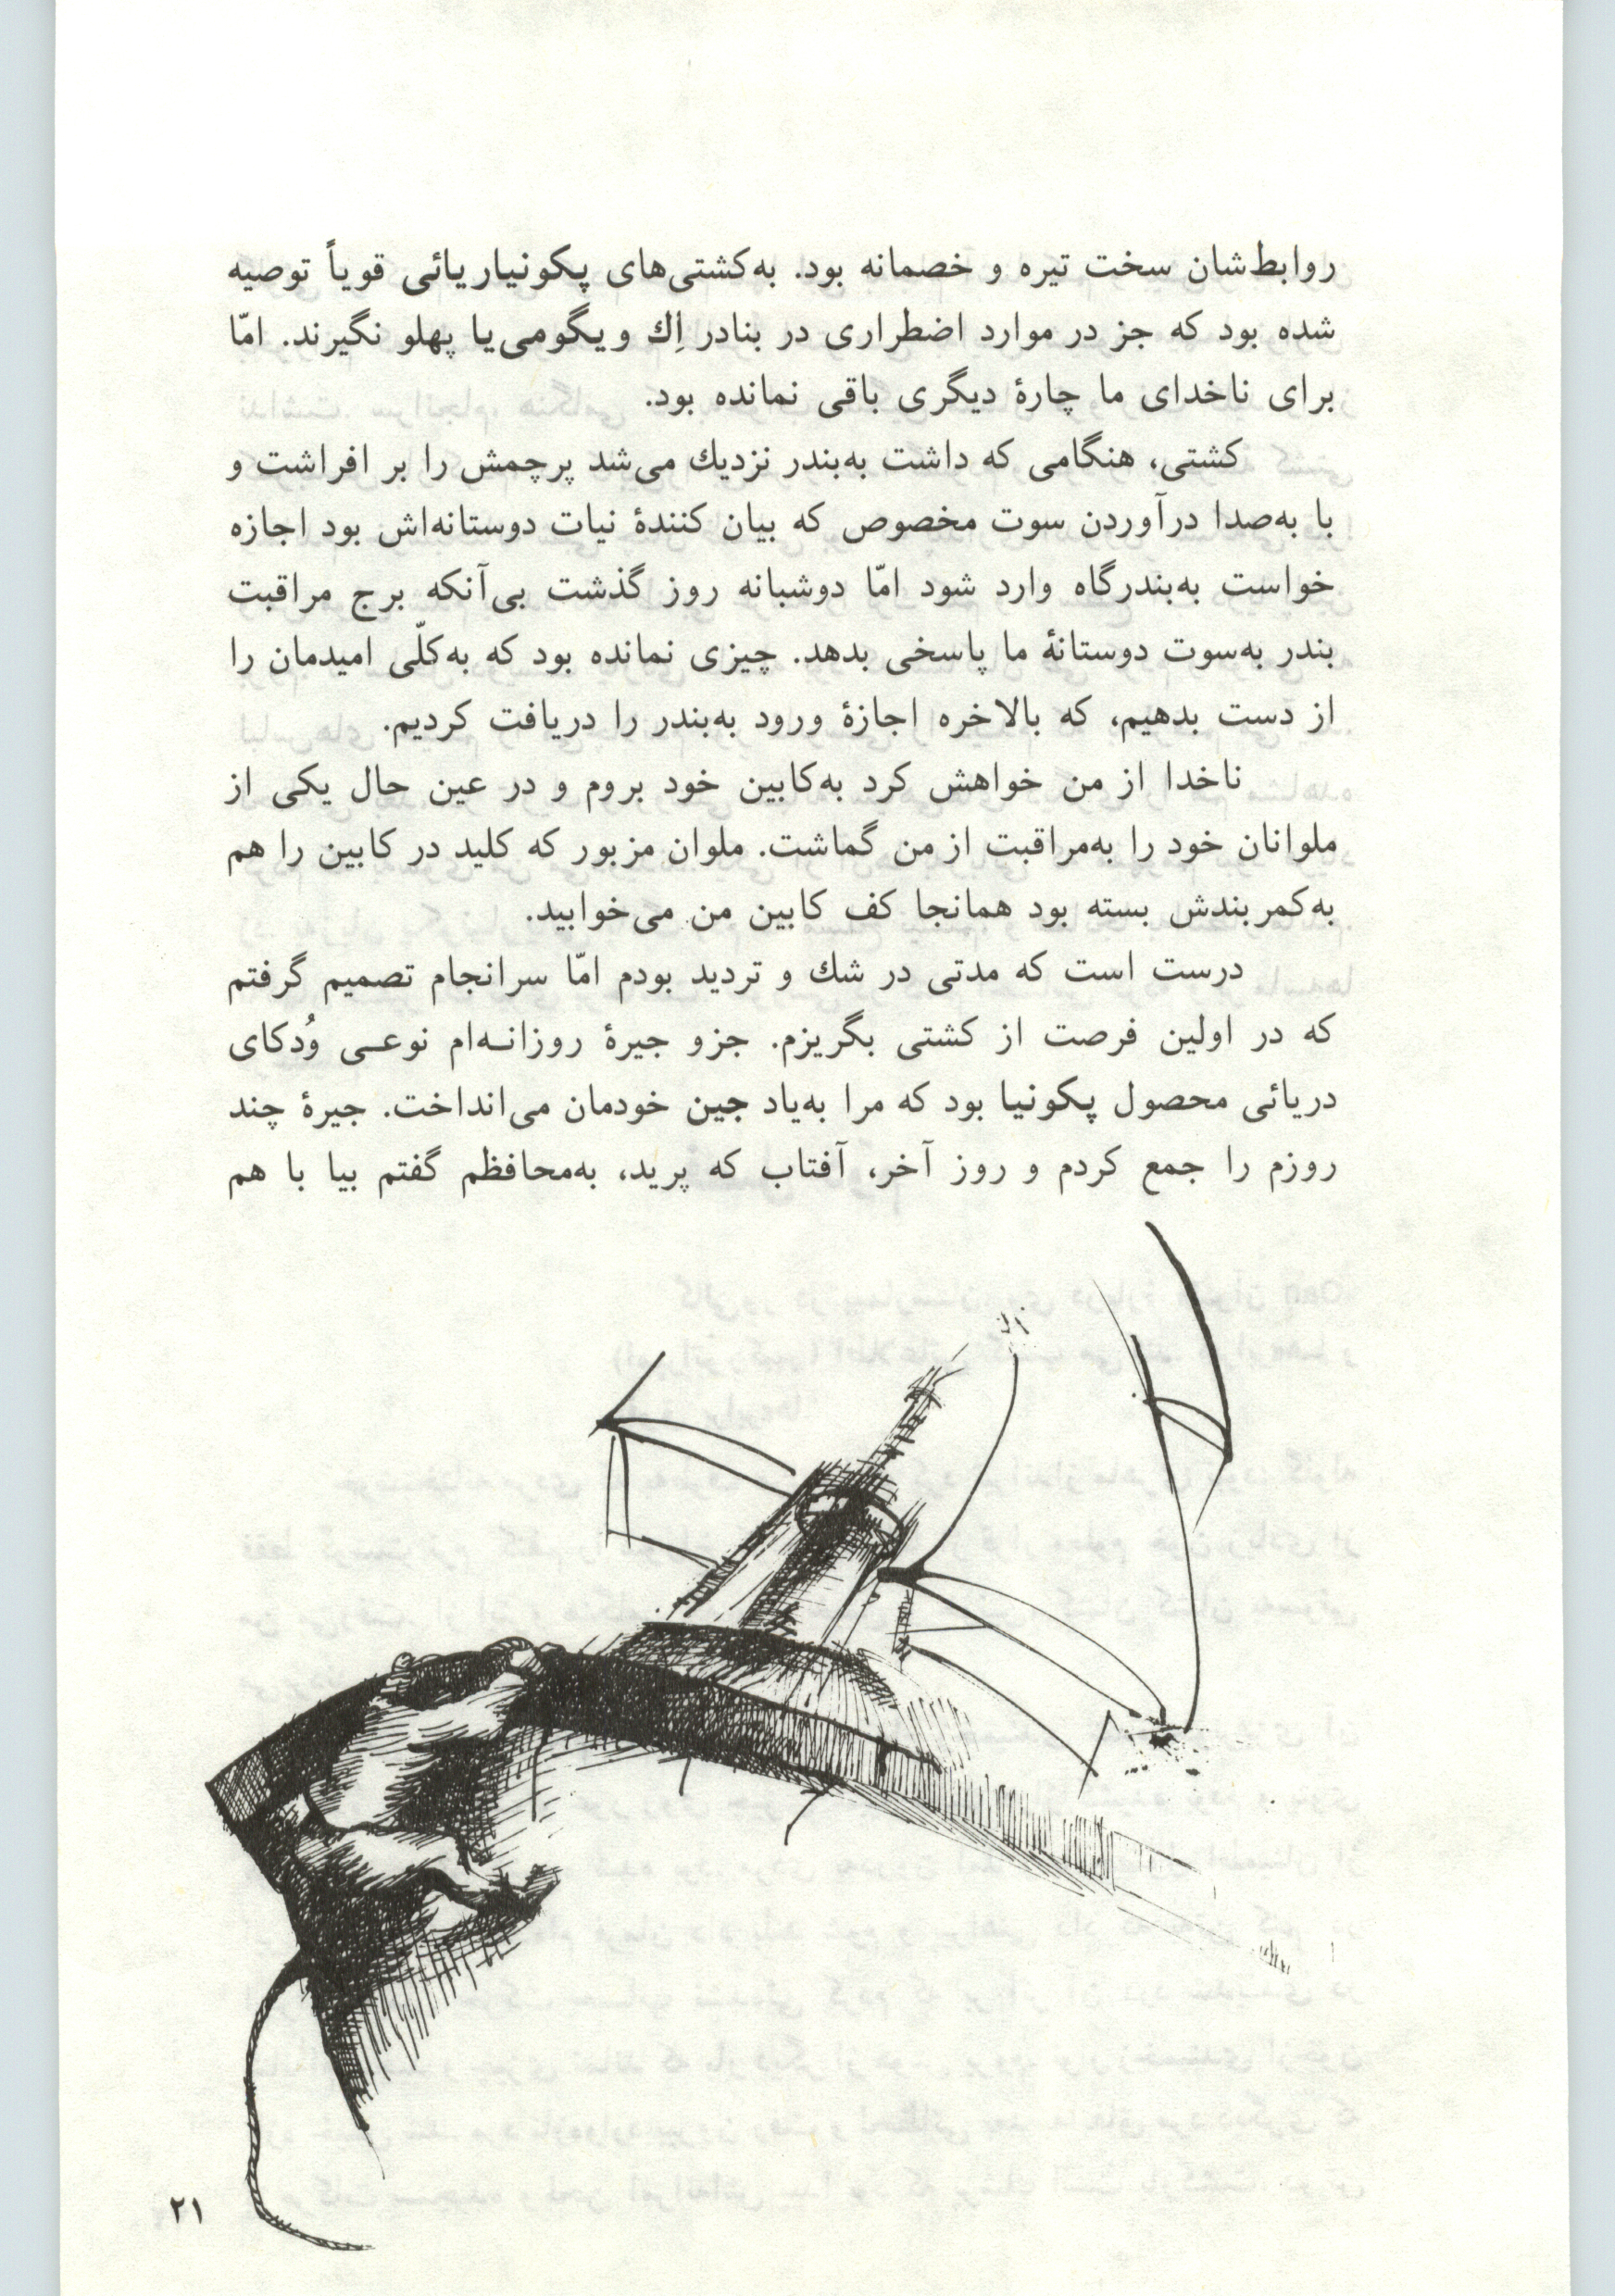 روابط‌شان سخت تیره و خصمانه بود. به‌کشتی‌های پکونیاریائی قویاً توصیه
شده بود که جز در موارد اضطراری در بنادر اِك ویگومی‌یا پهلو نگیرند. امّا
برای ناخدای ما چارهٔ دیگری باقی نمانده بود.
کشتی، هنگامی که داشت به‌بندر نزدیك می‌شد پرچمش را بر افراشت و
با به‌صدا درآوردن سوت مخصوص که بیان کنندهٔ نیات دوستانه‌اش بود اجازه
خواست به‌بندرگاه وارد شود امّا دوشبانه روز گذشت بی‌آنکه برج مراقبت
بندر به‌سوت دوستانهٔ ما پاسخی بدهد. چیزی نمانده بود که به‌کلّی امیدمان را
از دست بدهیم، که بالاخره اجازهٔ ورود به‌بندر را دریافت کردیم.
ناخدا از من خواهش کرد به‌کابین خود بروم و در عین حال یکی از
ملوانان خود را به‌مراقبت از من گماشت. ملوان مزبور که کلید در کابین را هم
به‌کمربندش بسته بود همانجا کف کابین من می‌خوابید.
درست است که مدتی در شك و تردید بودم امّا سرانجام تصمیم گرفتم
که در اولین فرصت از کشتی بگریزم. جزو جیرهٔ روزانـه‌ام نوعـی وُدکای
دریائی محصول پکونیا بود که مرا به‌یاد جین خودمان می‌انداخت. جیرهٔ چند
روزم را جمع کردم و روز آخر، آفتاب که پرید، به‌محافظم گفتم بیا با هم
۲۱